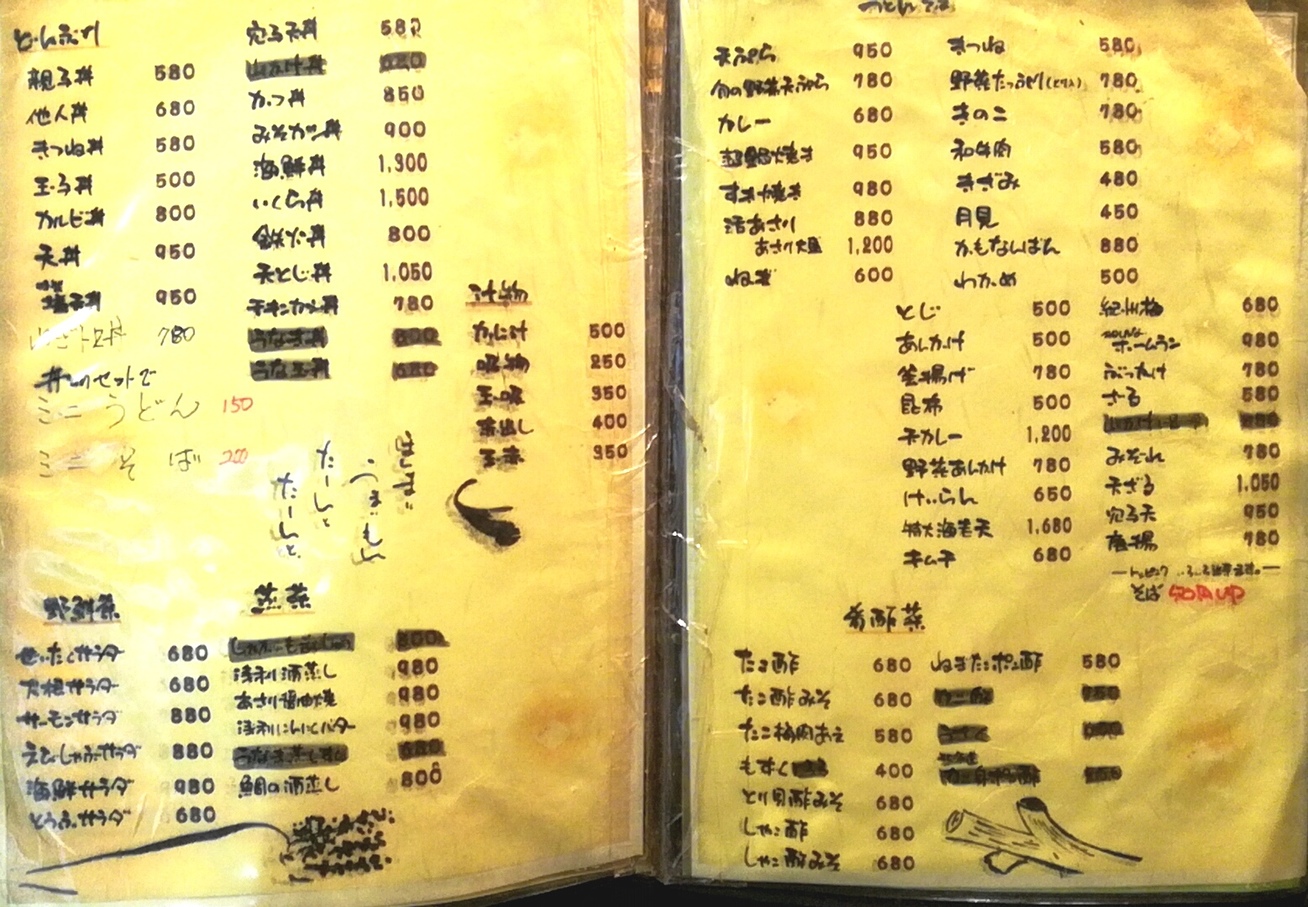 親子丼 580
他人丼 680
きつね丼 580
玉子丼 500
カルビ丼 800
天丼 950
950
780
丼物のセットで
ミニうどん 150
ミニそば 200
穴子天丼 580
山かけ丼
かつ丼 850
みそカツ丼 900
海鮮丼 1,300
いくら丼 1,500
鉄火丼 800
天とじ丼 1,050
チキンカツ丼 780
うなぎ丼 800
うな玉丼 680
汁物
500
吸物 250
玉吸 350
400
玉赤 350
うまいもん
たーんと
たーんと
野鮮菜
ぜいたくサラダ 680
大根サラダ 680
サーモンサラダ 880
えびしゃぶサラダ 880
海鮮サラダ 980
とうふサラダ 680
蒸菜
800
浅利酒蒸し 980
あさり醤油焼 980
浅利にんにくバター 980
うなぎ蒸し 680
鯛の酒蒸し 800
うどん そば
天ぷら 950
旬の野菜天ぷら 780
カレー 680
鍋焼き 950
すき焼き 980
活あさり 880
あさり大盛 1,200
ねぎ 600
きつね 580
野菜たっぷり(とり入) 780
きのこ 780
和牛肉 580
きざみ 480
月見 450
かもなんばん 880
わかめ 500
とじ 500
あんかけ 500
釜揚げ 780
昆布 500
天カレー 1,200
野菜あんかけ 780
けいらん 650
特大海老天 1,680
キムチ 680
紀州梅 680
ホームラン 980
ぶっかけ 780
ざる 580
山かけ
みぞれ 780
天ざる 1,050
穴子天 950
唐揚 780
そば 50円UP
肴酢菜
たこ酢 680
たこ酢みそ 680
たこ梅肉あえ 580
もずく 400
とり貝酢みそ 680
しゃこ酢 680
しゃこ酢みそ 680
ねぎたこポン酢 580